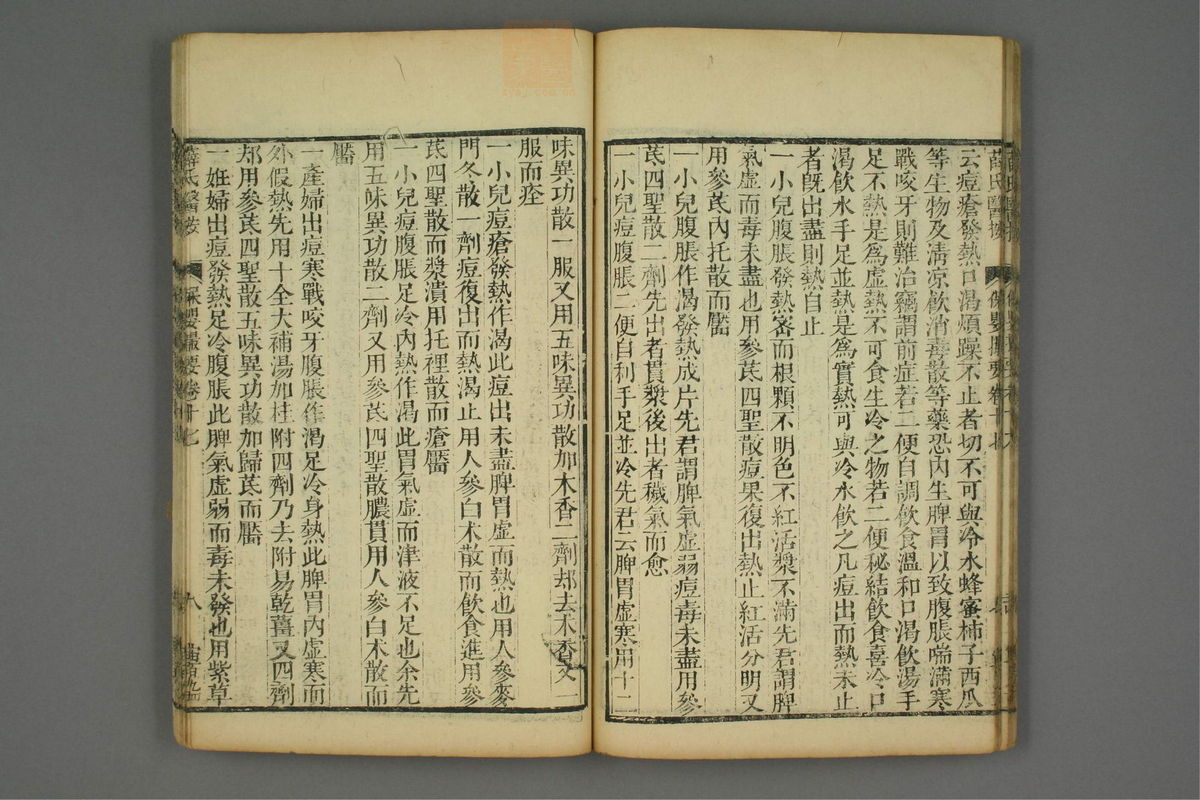 云痘瘡發熱口渴煩躁不止者切不可與冷水蜂蜜柿子西瓜
等生物及清凉飲消毒散等藥恐內生脾胃以致腹脹喘滿寒
戰咬牙則難治竊謂前症若二便自調飲食溫和口渴飲湯手
足不熱是爲虛熱不可食生冷之物若二便秘結飲食喜冷口
渴飲水手足並熱是爲實熱可與冷水飲之凡痘出而熱未止
者旣出盡則熱自止
一小兒腹脹發熱密而根顆不明色不紅活漿不滿先君謂脾
氣虛而毒未盡也用參芪四聖散痘果復出熱止紅活分明又
用參芪內托散而靨
一小兒腹脹作渴發熱成片先君謂脾氣虛弱痘毒未盡用參
芪四聖散二劑先出者貫漿後出者穢氣而愈
一小兒痘腹脹二便自利手足並冷先君云脾胃虛寒用十二
味異功散一服又用五味異功散加木香二劑却去木香又一
服而痊
一小兒痘瘡發熱作渴此痘出未盡脾胃虛而熱也用人參麥
門冬散一劑痘復出而熱渴止用人參白朮散而飲食進用參
芪四聖散而漿潰用托裡散而瘡靨
一小兒痘腹脹足冷內熱作渴此胃氣虛而津液不足也余先
用五味異功散二劑又用參芪四聖散膿貫用人參白朮散而
靨
一產婦出痘寒戰咬牙腹脹作渴足冷身熱此脾胃內虛寒而
外假熱先用十全大補湯加桂附四劑乃去附易乾薑又四劑
却用參芪四聖散五味異功散加歸芪而靨
一姙婦出痘發熱足冷腹脹此脾氣虛弱而毒未發也用紫草
薛氏醫按 保嬰撮要卷十七 八